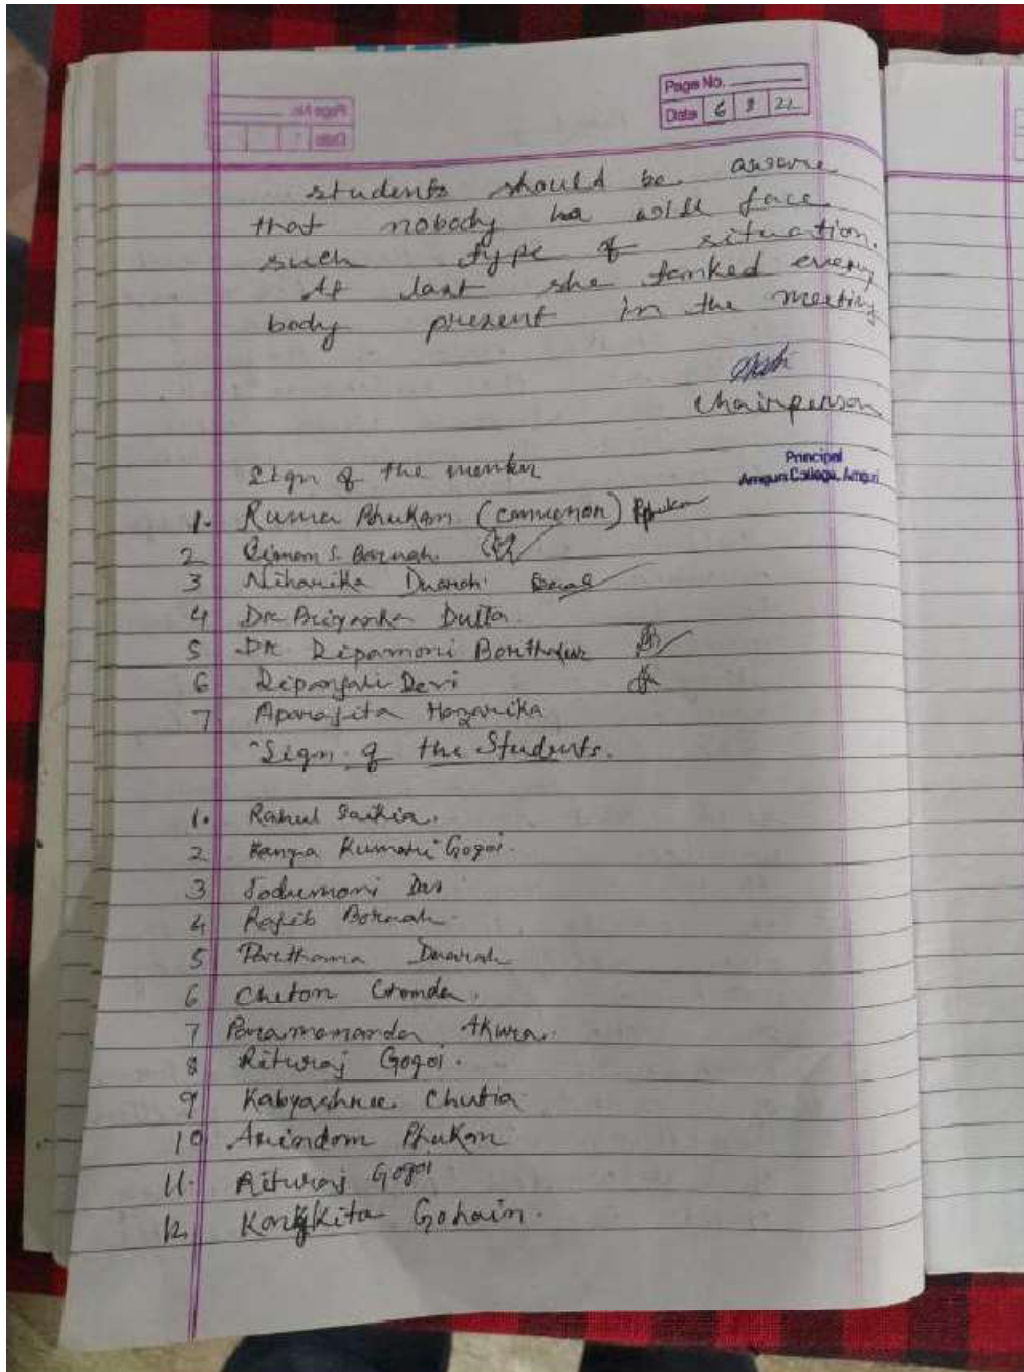 Page No.
Date 6 8 22
students should be assure
that nobody ha will face
such type of situation.
At last she tanked every
body present in the meeting
Chairperson
Principal
Amguri College, Amguri
Sign of the member
1. Ruma Bhukan (convenon) Rphukan
2 S. Boruah
3 Niharika Duarah
4 Dr Priyanka Dutta
5 Dr Dipamoni Borthakur
6 Dipanjali Devi
7 Aparajita Hazarika
Sign of the Students.
1. Rahul Saikia.
2 Kumari Gogoi.
3 Jadumoni Das
4 Rajib Boruah
5 Duarah
6 Cheton
7
8 Rituraj Gogoi.
9 Kabyashree Chutia
10 Arindom Phukan
11. Rituraj Gogoi
12. Gohain.